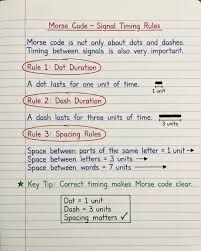 Morse Code – Signal Timing Rules
Morse code is not only about dots and dashes.
Timing between signals is also very important.
Rule 1: Dot Duration
A dot lasts for one unit of time.
1 unit
Rule 2: Dash Duration
A dash lasts for three units of time.
3 units
Rule 3: Spacing Rules
Space between parts of the same letter = 1 unit →
Space between letters = 3 units →
Space between words = 7 units →
★ Key Tip: Correct timing makes Morse code clear.
Dot = 1 unit
Dash = 3 units
Spacing matters ✓